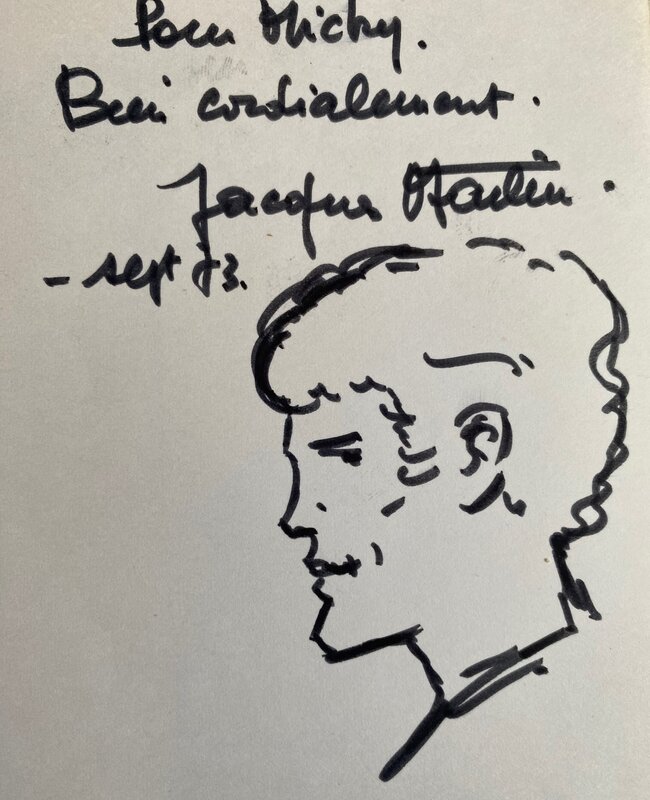 Pour Michy.
Bien cordialement.
Jacques Martin.
- sept 83.